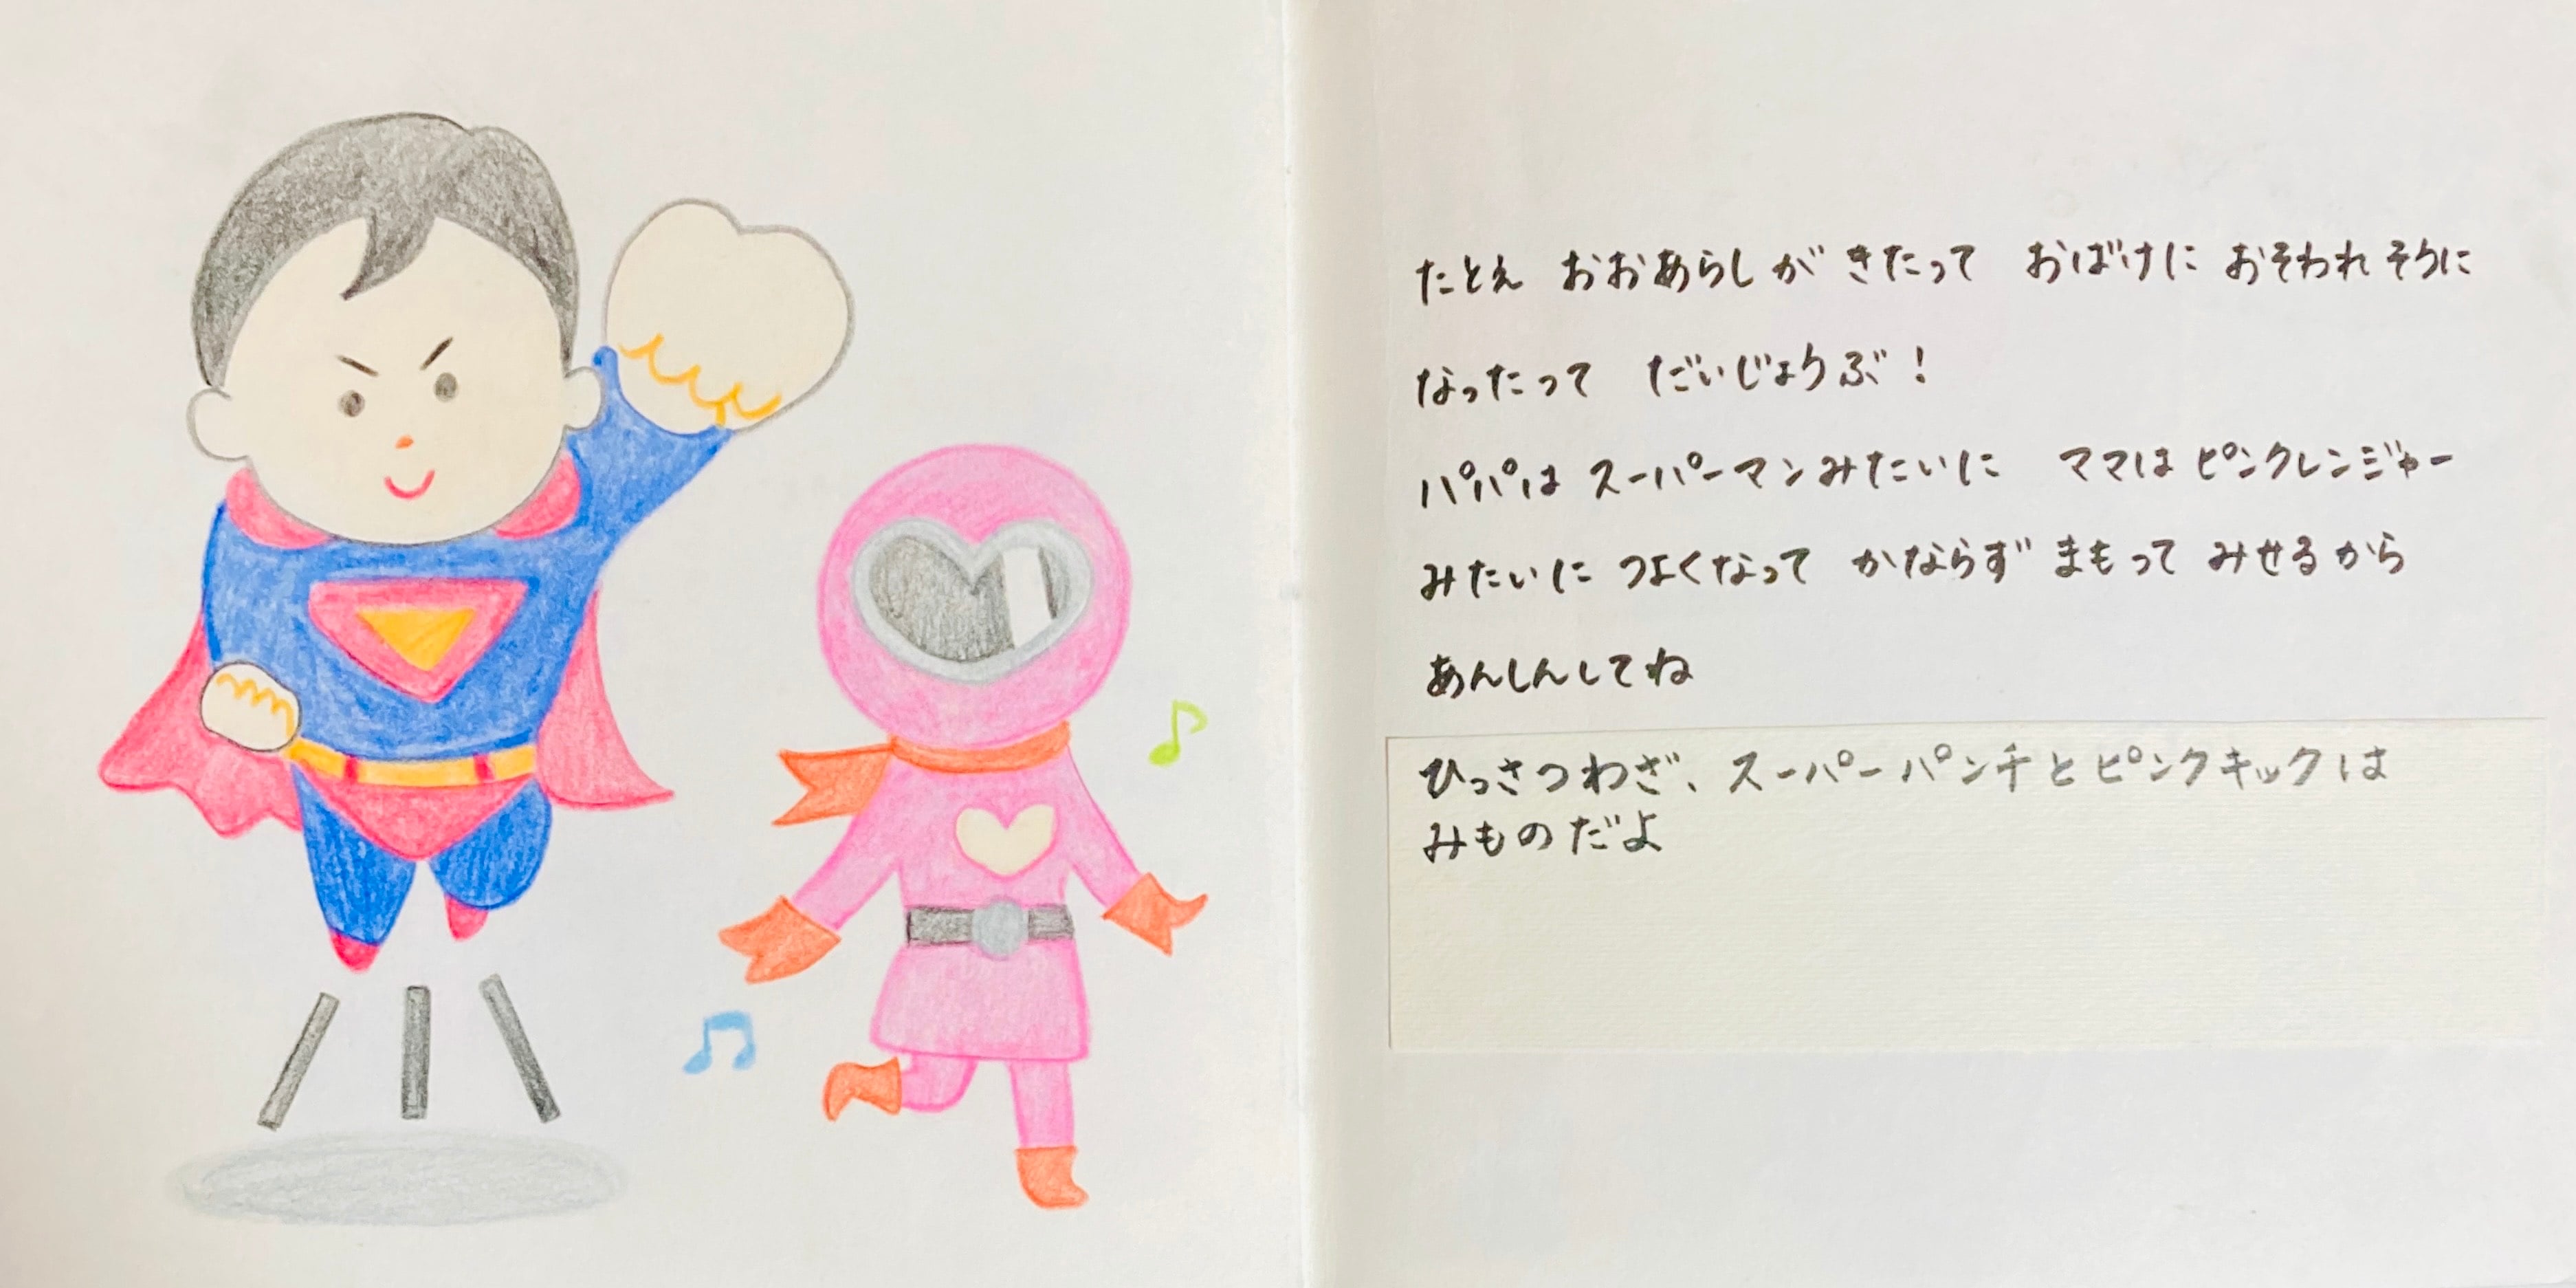 たとえ おおあらしが きたって おばけに おそわれそうに
なったって だいじょうぶ！
パパは スーパーマンみたいに ママは ピンクレンジャー
みたいに つよくなって かならず まもって みせるから
あんしんしてね
ひっさつわざ、スーパーパンチとピンクキックは
みものだよ